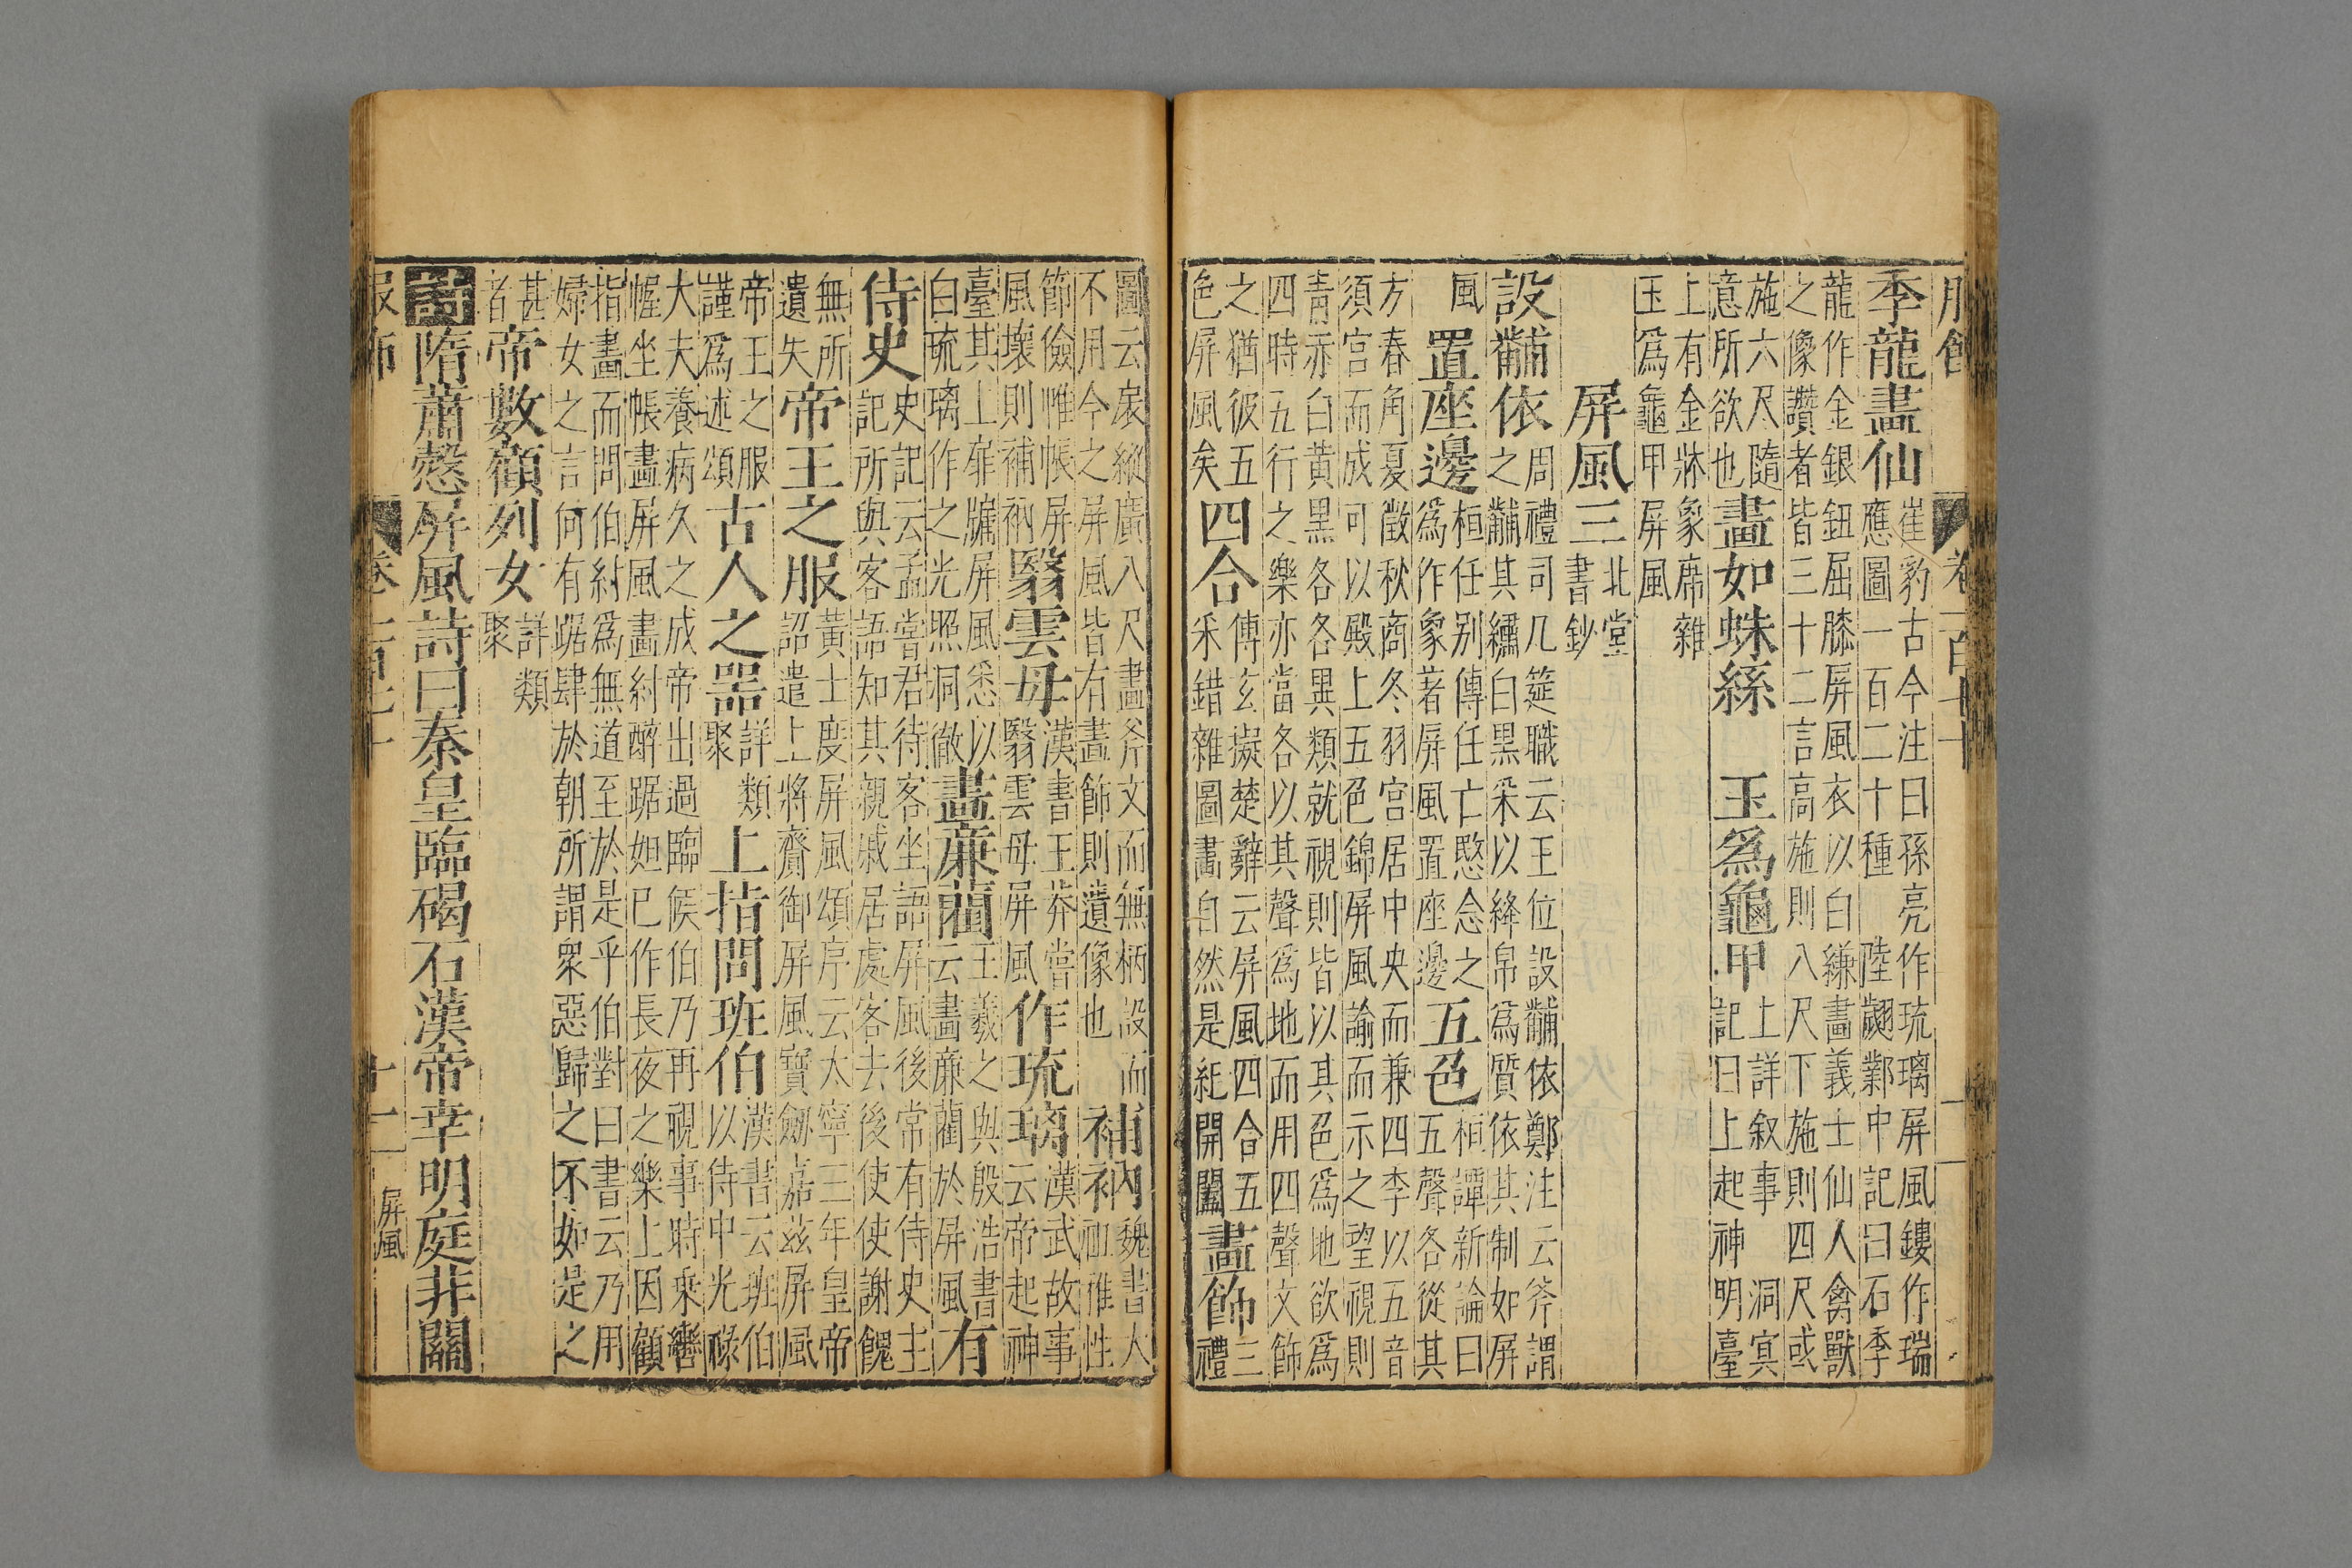 季龍畫仙崔豹古今注曰孫亮作琉璃屏風鏤作瑞
應圖一百二十種　陸翽鄴中記曰石季
龍作金銀鈕屈膝屏風衣以白縑畫義士仙人禽獸
之像讚者皆三十二言高施則八尺下施則四尺或
施六尺隨
意所欲也畫如蛛絲　玉為龜甲上詳叙事　洞冥
記曰上起神　明臺
上有金牀象席雜
玉爲龜甲屏風
屏風三北堂
書鈔
設黼依周禮司几筵職云王位設黼依鄭注云斧謂
之黼其繡白黑采以絳帛爲質依其制如屏
風
置座邊桓任别傳任亡愍念之
爲作象著屏風置座邊五色桓譚新論曰
五聲各從其
方春角夏徵秋商冬羽宮居中央而兼四季以五音
須宮而成可以殿上五色錦屏風諭而示之望視則
青赤白黃黑各各異類就視則皆以其色爲地欲爲
四時五行之樂亦當各以其聲爲地而用四聲文飾
之猶彼五
色屏風矣四合傅玄擬楚辭云屏風四合五
采錯雜圖畫自然是紝開闔畫飾三
禮
圖云扆縱廣八尺畫斧文而無柄設而
不用今之屏風皆有畫飾則遺像也補衲魏書人
祖雅性
節儉帷帳屏
風壞則補衲翳雲母漢書王莽嘗
翳雲母屏風作琉璃漢武故事
云帝起神
臺其上扉牖屏風悉以
白琉璃作之光照洞徹畫廉藺王羲之與殷浩書
云畫廉藺於屏風有
侍史史記云孟嘗君待客坐語屏風後常有侍史主
記所與客語知其親戚居處客去後使使謝餽
無所
遺失帝王之服黃士度屏風頌序云太寧三年皇帝
詔遣上將齎御屏風寶劒嘉茲屏風
帝王之服
謹爲述頌古人之噐詳類
聚上指問班伯漢書云班伯
以侍中光祿
大夫養病久之成帝出過臨候伯乃再視事時乘轡
幄坐帳畫屏風畫紂醉踞妲已作長夜之樂上因顧
指畫而問伯紂爲無道至於是乎伯對曰書云乃用
婦女之言何有踞肆於朝所謂衆惡歸之不如是之
甚
者帝數顧列女詳類
聚
詩隋蕭慤屏風詩曰秦皇臨碣石漢帝幸明庭非關
屏風